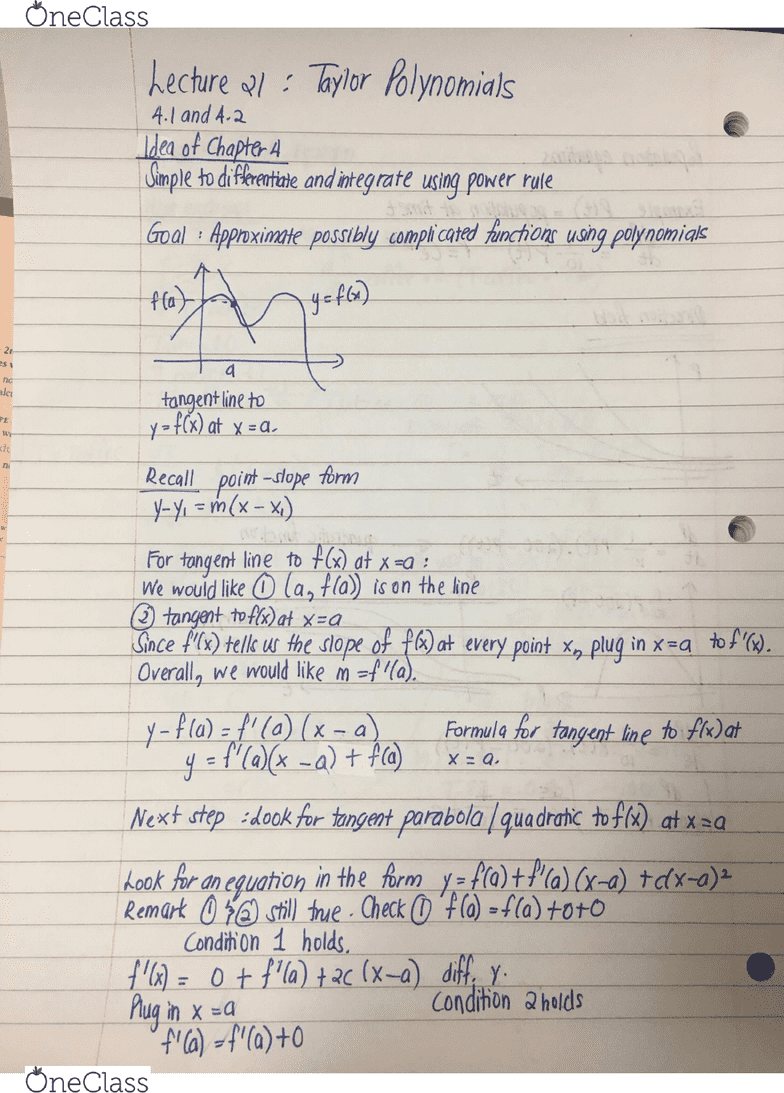 OneClass
Lecture 21 : Taylor Polynomials
4.1 and 4.2
Idea of Chapter 4
Simple to differentiate and integrate using power rule
Goal : Approximate possibly complicated functions using polynomials
f(a) y=f(x)
a
tangent line to
y=f(x) at x=a.
Recall point-slope form
y-y₁ = m(x-x₁)
For tangent line to f(x) at x=a :
We would like ① (a, f(a)) is on the line
② tangent to f(x) at x=a
Since f'(x) tells us the slope of f(x) at every point x, plug in x=a to f'(x).
Overall, we would like m=f'(a).
y-f(a) = f'(a)(x-a) Formula for tangent line to f(x) at
y = f'(a)(x-a) + f(a) x=a.
Next step : Look for tangent parabola/quadratic to f(x) at x=a
Look for an equation in the form y=f(a)+f'(a)(x-a)+c(x-a)²
Remark ① & ② still true. Check ① f(a)=f(a)+0+0
Condition 1 holds.
f'(x) = 0 + f'(a) + 2c(x-a) diff. y.
Plug in x=a Condition 2 holds
f'(a) = f'(a)+0
OneClass